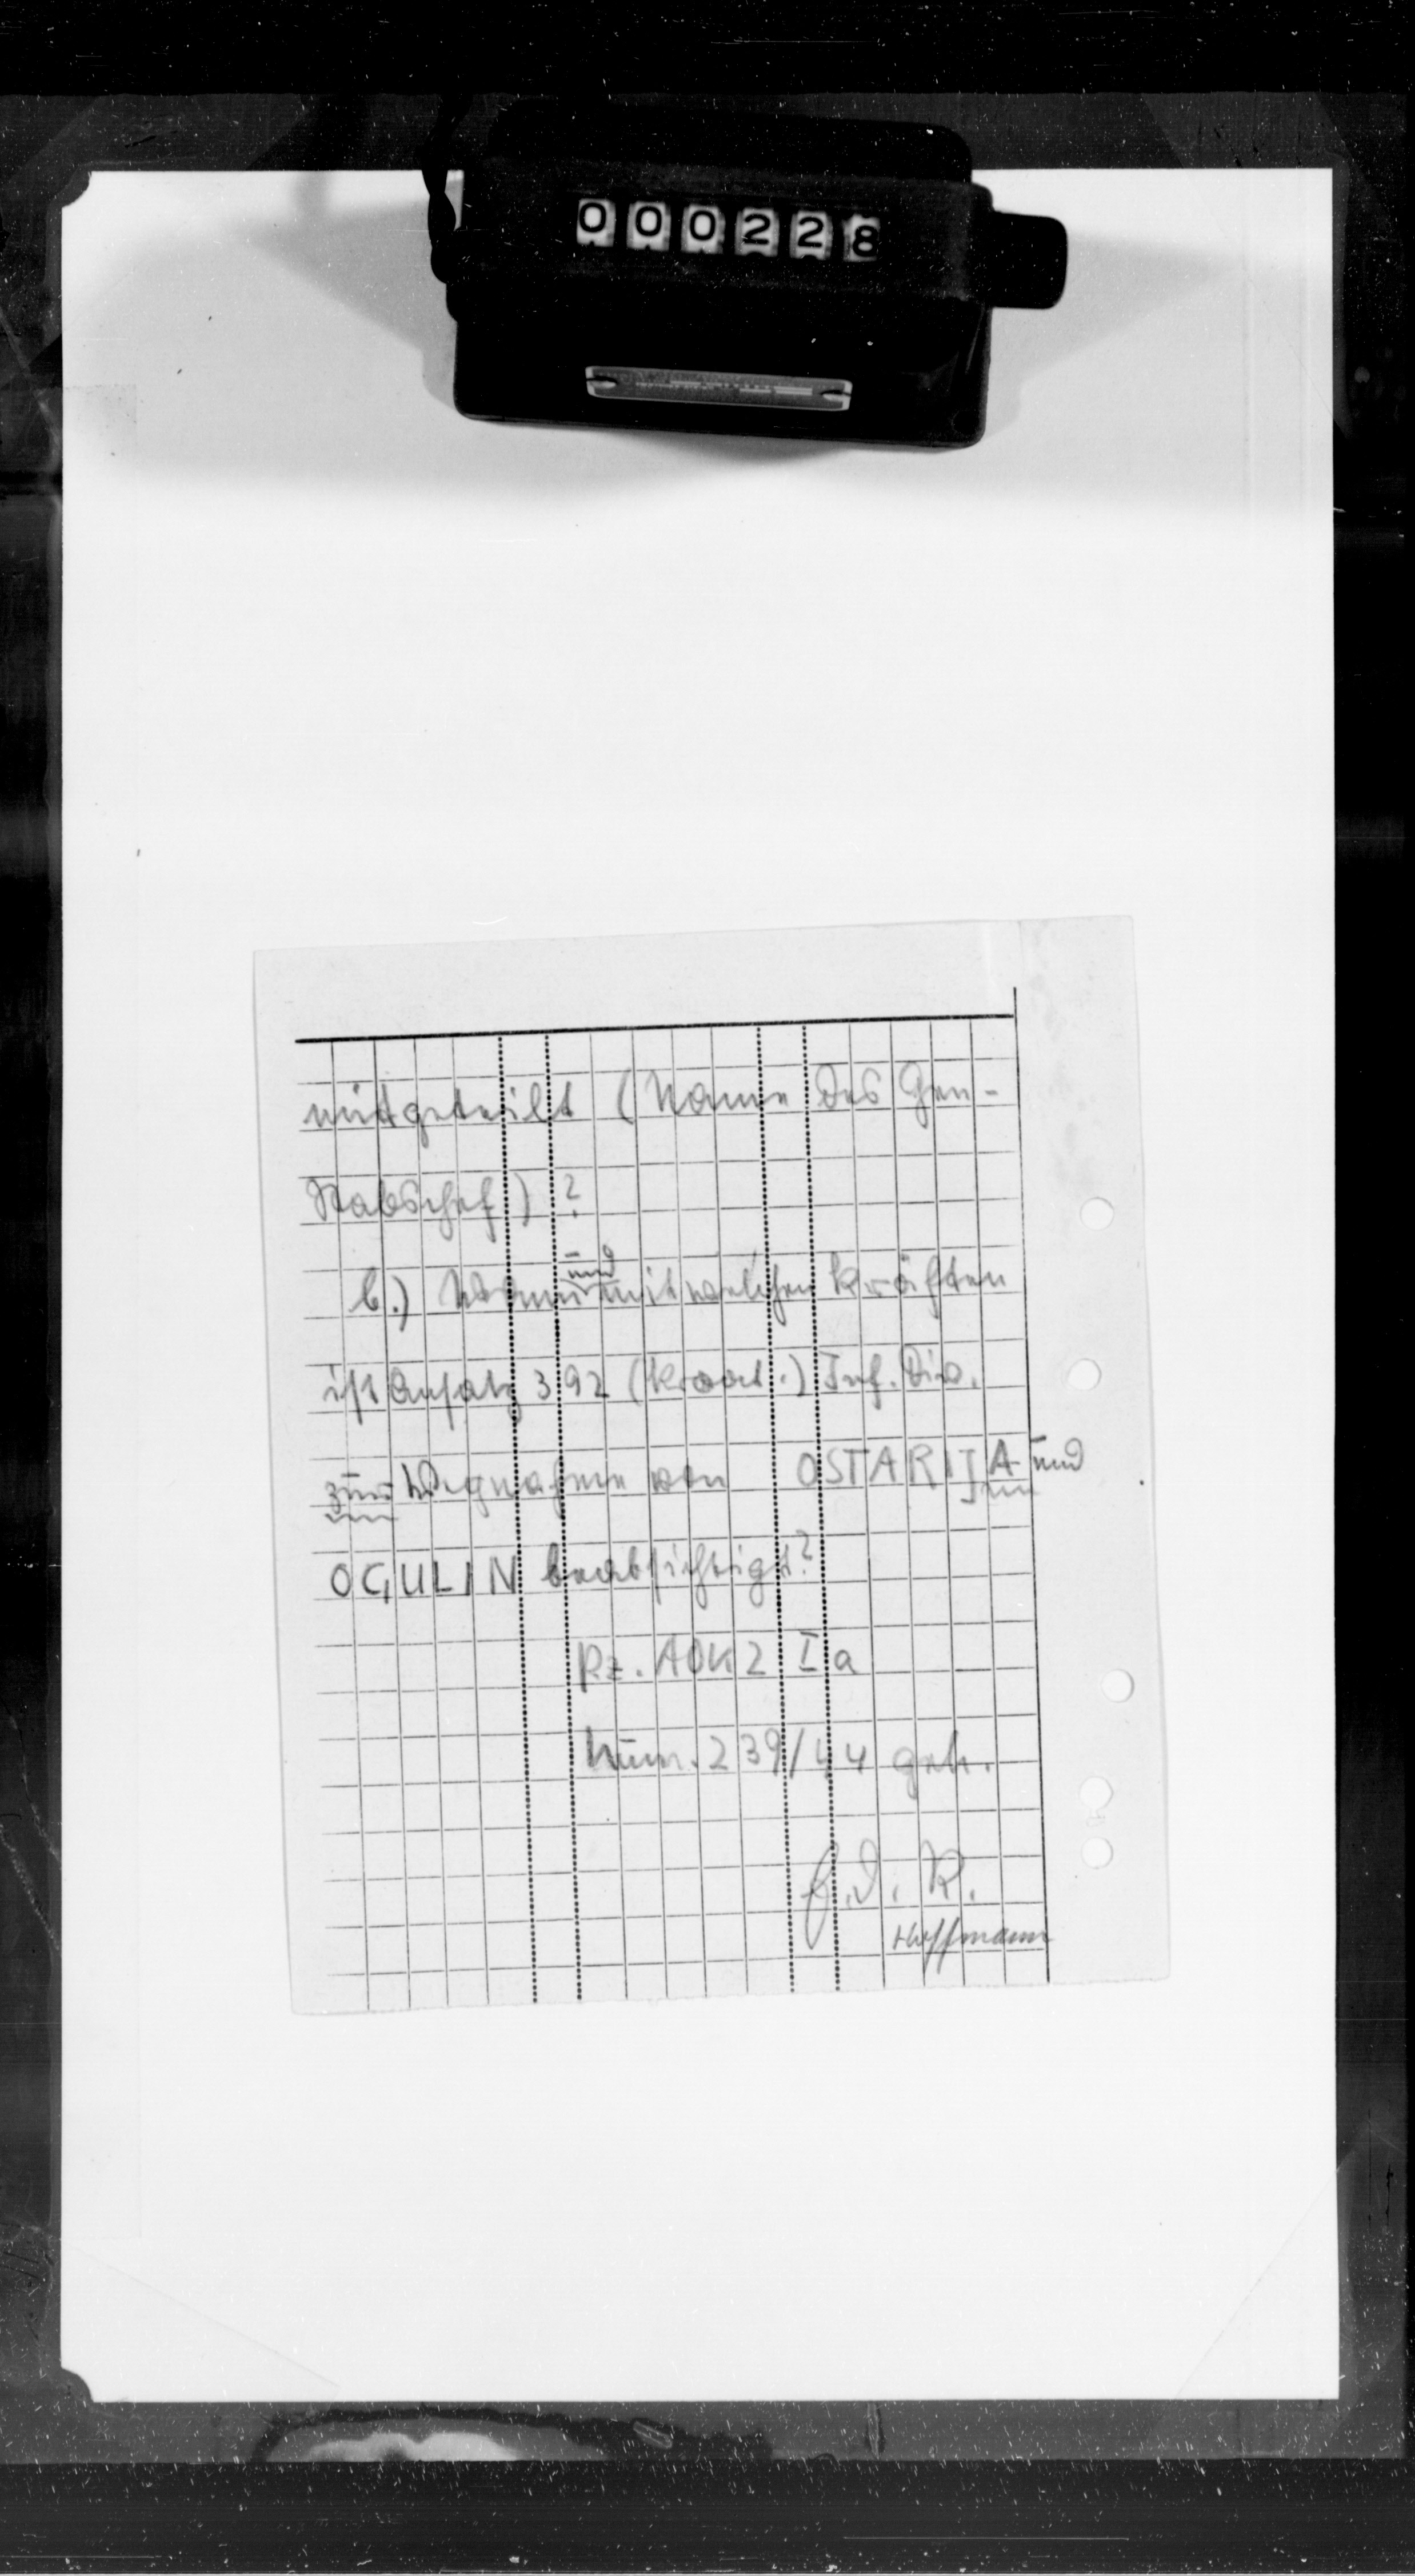 000228
mitgeteilt (Name des Gen-
Stabschef) ?
b.) Wann und mit welchen Kräften
ist Ansatz 392 (kroat.) Inf. Div.
zur Wegnahme von OSTARIJA und
OGULIN beabsichtigt?
Pz. AOK 2 Ia
Num. 239/44 geh.
F.d.R.
Hoffmann